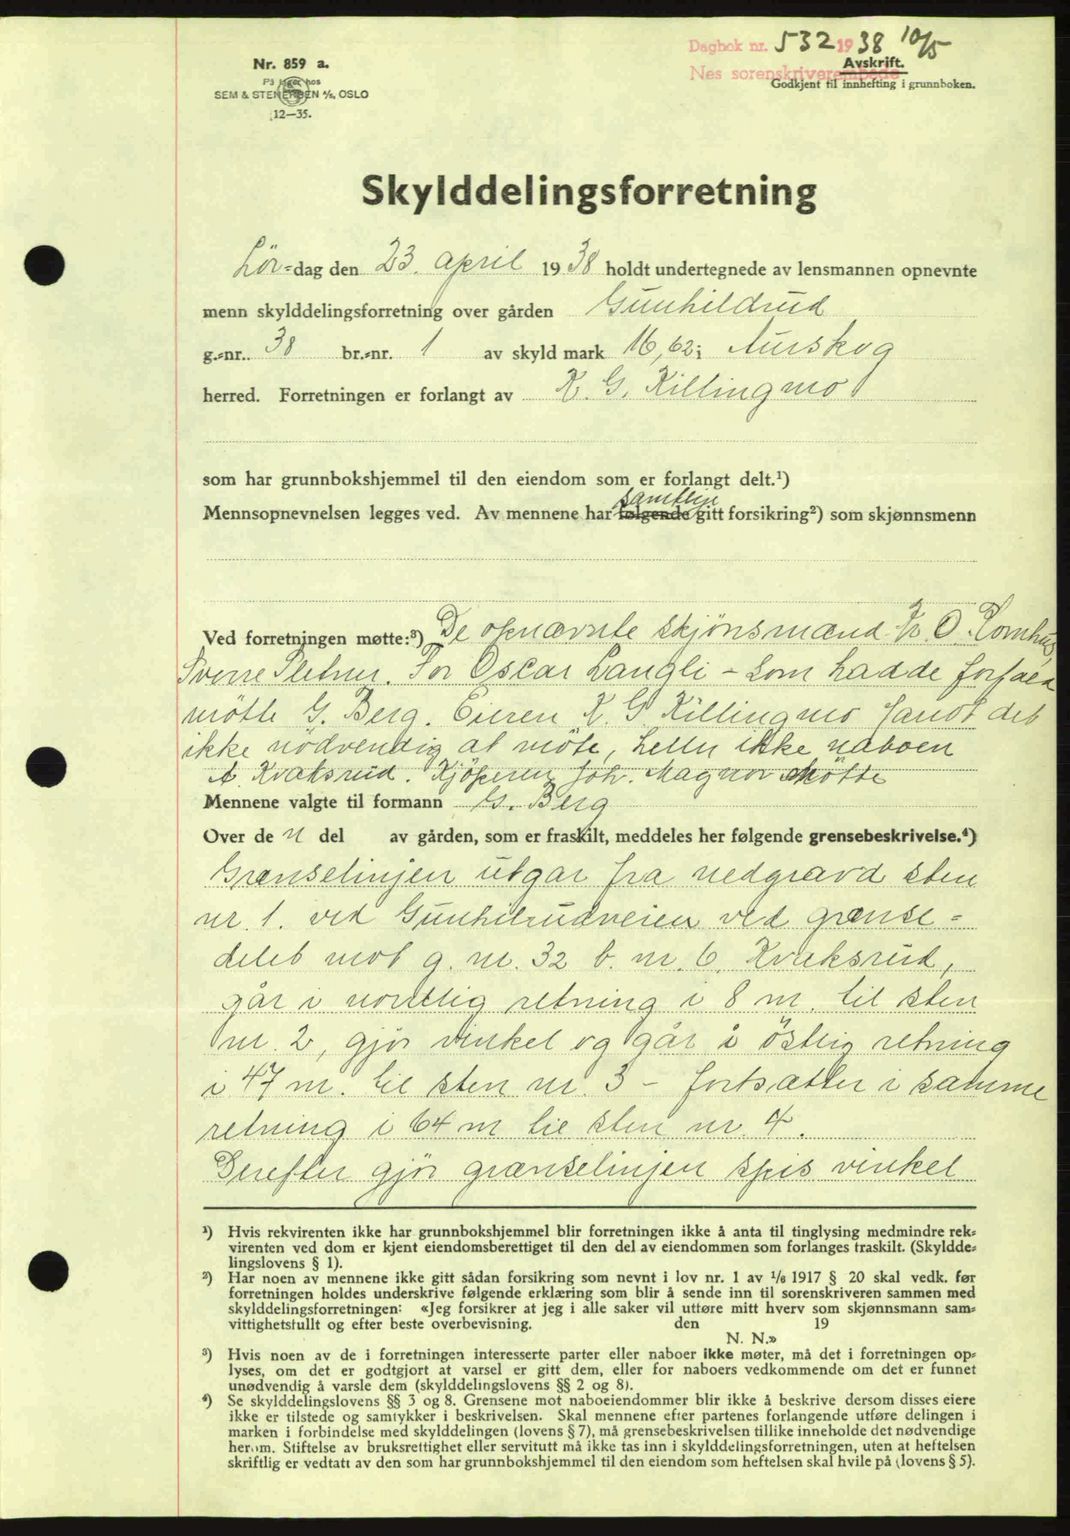 Dagbok nr. 532 1938 10/5
Nes sorenskriverembede
Avskrift.
Godkjent til innhefting i grunnboken.
Nr. 859 a.
På lager hos
SEM & STENERSEN A/S, OSLO
12—35.
Skylddelingsforretning
Lör-dag den 23. april 1938 holdt undertegnede av lensmannen opnevnte
menn skylddelingsforretning over gården Gunhildrud
g.-nr. 38 br.-nr. 1 av skyld mark 16,62 i Aurskog
herred. Forretningen er forlangt av K. G. Killingmo
som har grunnbokshjemmel til den eiendom som er forlangt delt.¹)
samtlige
Mennsopnevnelsen legges ved. Av mennene har følgende gitt forsikring²) som skjønnsmenn
Ved forretningen møtte:³) De opnævnte skjönsmænd K. O. Tomhus,
Sverre Sletner. For Oscar Langli – som hadde forfald
mötte G. Berg. Eieren K. G. Killingmo fandt det
ikke nödvendig at möte, heller ikke naboen
A. Kvaksrud. Kjöperen Joh. Magnor mötte
Mennene valgte til formann G. Berg
Over de n del av gården, som er fraskilt, meddeles her følgende grensebeskrivelse.⁴)
Grænselinjen utgar fra nedgravd sten
nr. 1. ved Gunhilrudveien ved grænse-
delet mot g. nr. 32 b. nr. 6. Kvaksrud,
går i nordlig retning i 8 m. til sten
nr. 2, gjör vinkel og går i östlig retning
i 47 m. til sten nr. 3 – fortsætter i samme
retning i 64 m til sten nr. 4.
Derefter gjör grænselinjen spis vinkel
¹) Hvis rekvirenten ikke har grunnbokshjemmel blir forretningen ikke å anta til tinglysing medmindre rek-
virenten ved dom er kjent eiendomsberettiget til den del av eiendommen som forlanges fraskilt. (Skyldde-
lingslovens § 1).
²) Har noen av mennene ikke gitt sådan forsikring som nevnt i lov nr. 1 av ¹/₆ 1917 § 20 skal vedk. før
forretningen holdes underskrive følgende erklæring som blir å sende inn til sorenskriveren sammen med
skylddelingsforretningen: «Jeg forsikrer at jeg i alle saker vil utføre mitt hverv som skjønnsmann sam-
vittighetsfullt og efter beste overbevisning. den 19
N. N.»
³) Hvis noen av de i forretningen interesserte parter eller naboer ikke møter, må det i forretningen op-
lyses, om det er godtgjort at varsel er gitt dem, eller for naboers vedkommende om det er funnet
unødvendig å varsle dem (skylddelingslovens §§ 2 og 8).
⁴) Se skylddelingslovens §§ 3 og 8. Grensene mot naboeiendommer blir ikke å beskrive dersom disses eiere
ikke er tilstede og samtykker i beskrivelsen. Skal mennene efter partenes forlangende utføre delingen i
marken i forbindelse med skylddelingen (lovens § 7), må grensebeskrivelsen tillike inneholde det nødvendige
herom. Stiftelse av bruksrettighet eller servitutt må ikke tas inn i skylddelingsforretningen, uten at heftelsen
skriftlig er vedtatt av den som har grunnbokshjemmel til den eiendom som heftelsen skal hvile på (lovens § 5).